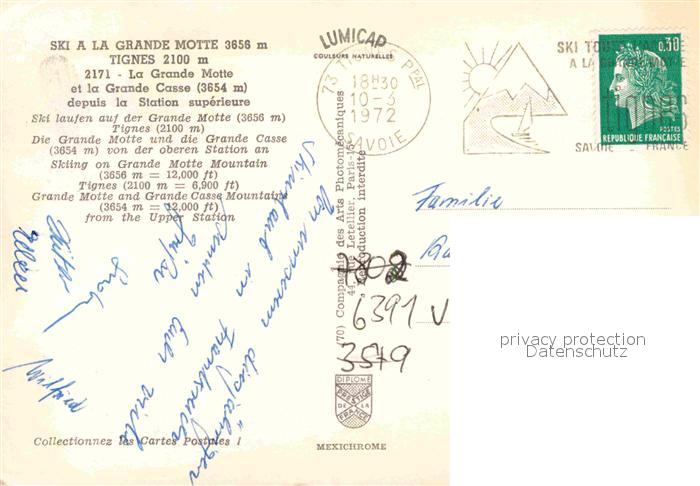 SKI A LA GRANDE MOTTE 3656 m
TIGNES 2100 m
2171 - La Grande Motte
et la Grande Casse (3654 m)
depuis la Station supérieure
Ski laufen auf der Grande Motte (3656 m)
Tignes (2100 m)
Die Grande Motte und die Grande Casse
(3654 m) von der oberen Station an
Skiing on Grande Motte Mountain
(3656 m = 12,000 ft)
Tignes (2100 m = 6,900 ft)
Grande Motte and Grande Casse Mountains
(3654 m = 12,000 ft)
from the Upper Station
Von unserem diesjährigen
Skiurlaub in Frankreich
senden Euch viele
Grüße
Wilfried
Collectionnez les Cartes Postales !
LUMICAP
COULEURS NATURELLES
73 TIGNES PPAL
18H30
10-3
1972
SAVOIE
SKI TOUTE L'ANNEE
A LA GRANDE MOTTE
SAVOIE - FRANCE
0,30
POSTES
REPUBLIQUE FRANÇAISE
(70) Compagnie des Arts Photomécaniques
44, Rue Letellier, Paris-15e
Reproduction interdite
DIPLOME
PRESTIGE
DE LA
FRANCE
MEXICHROME
Familie
6391 V
3579
privacy protection
Datenschutz